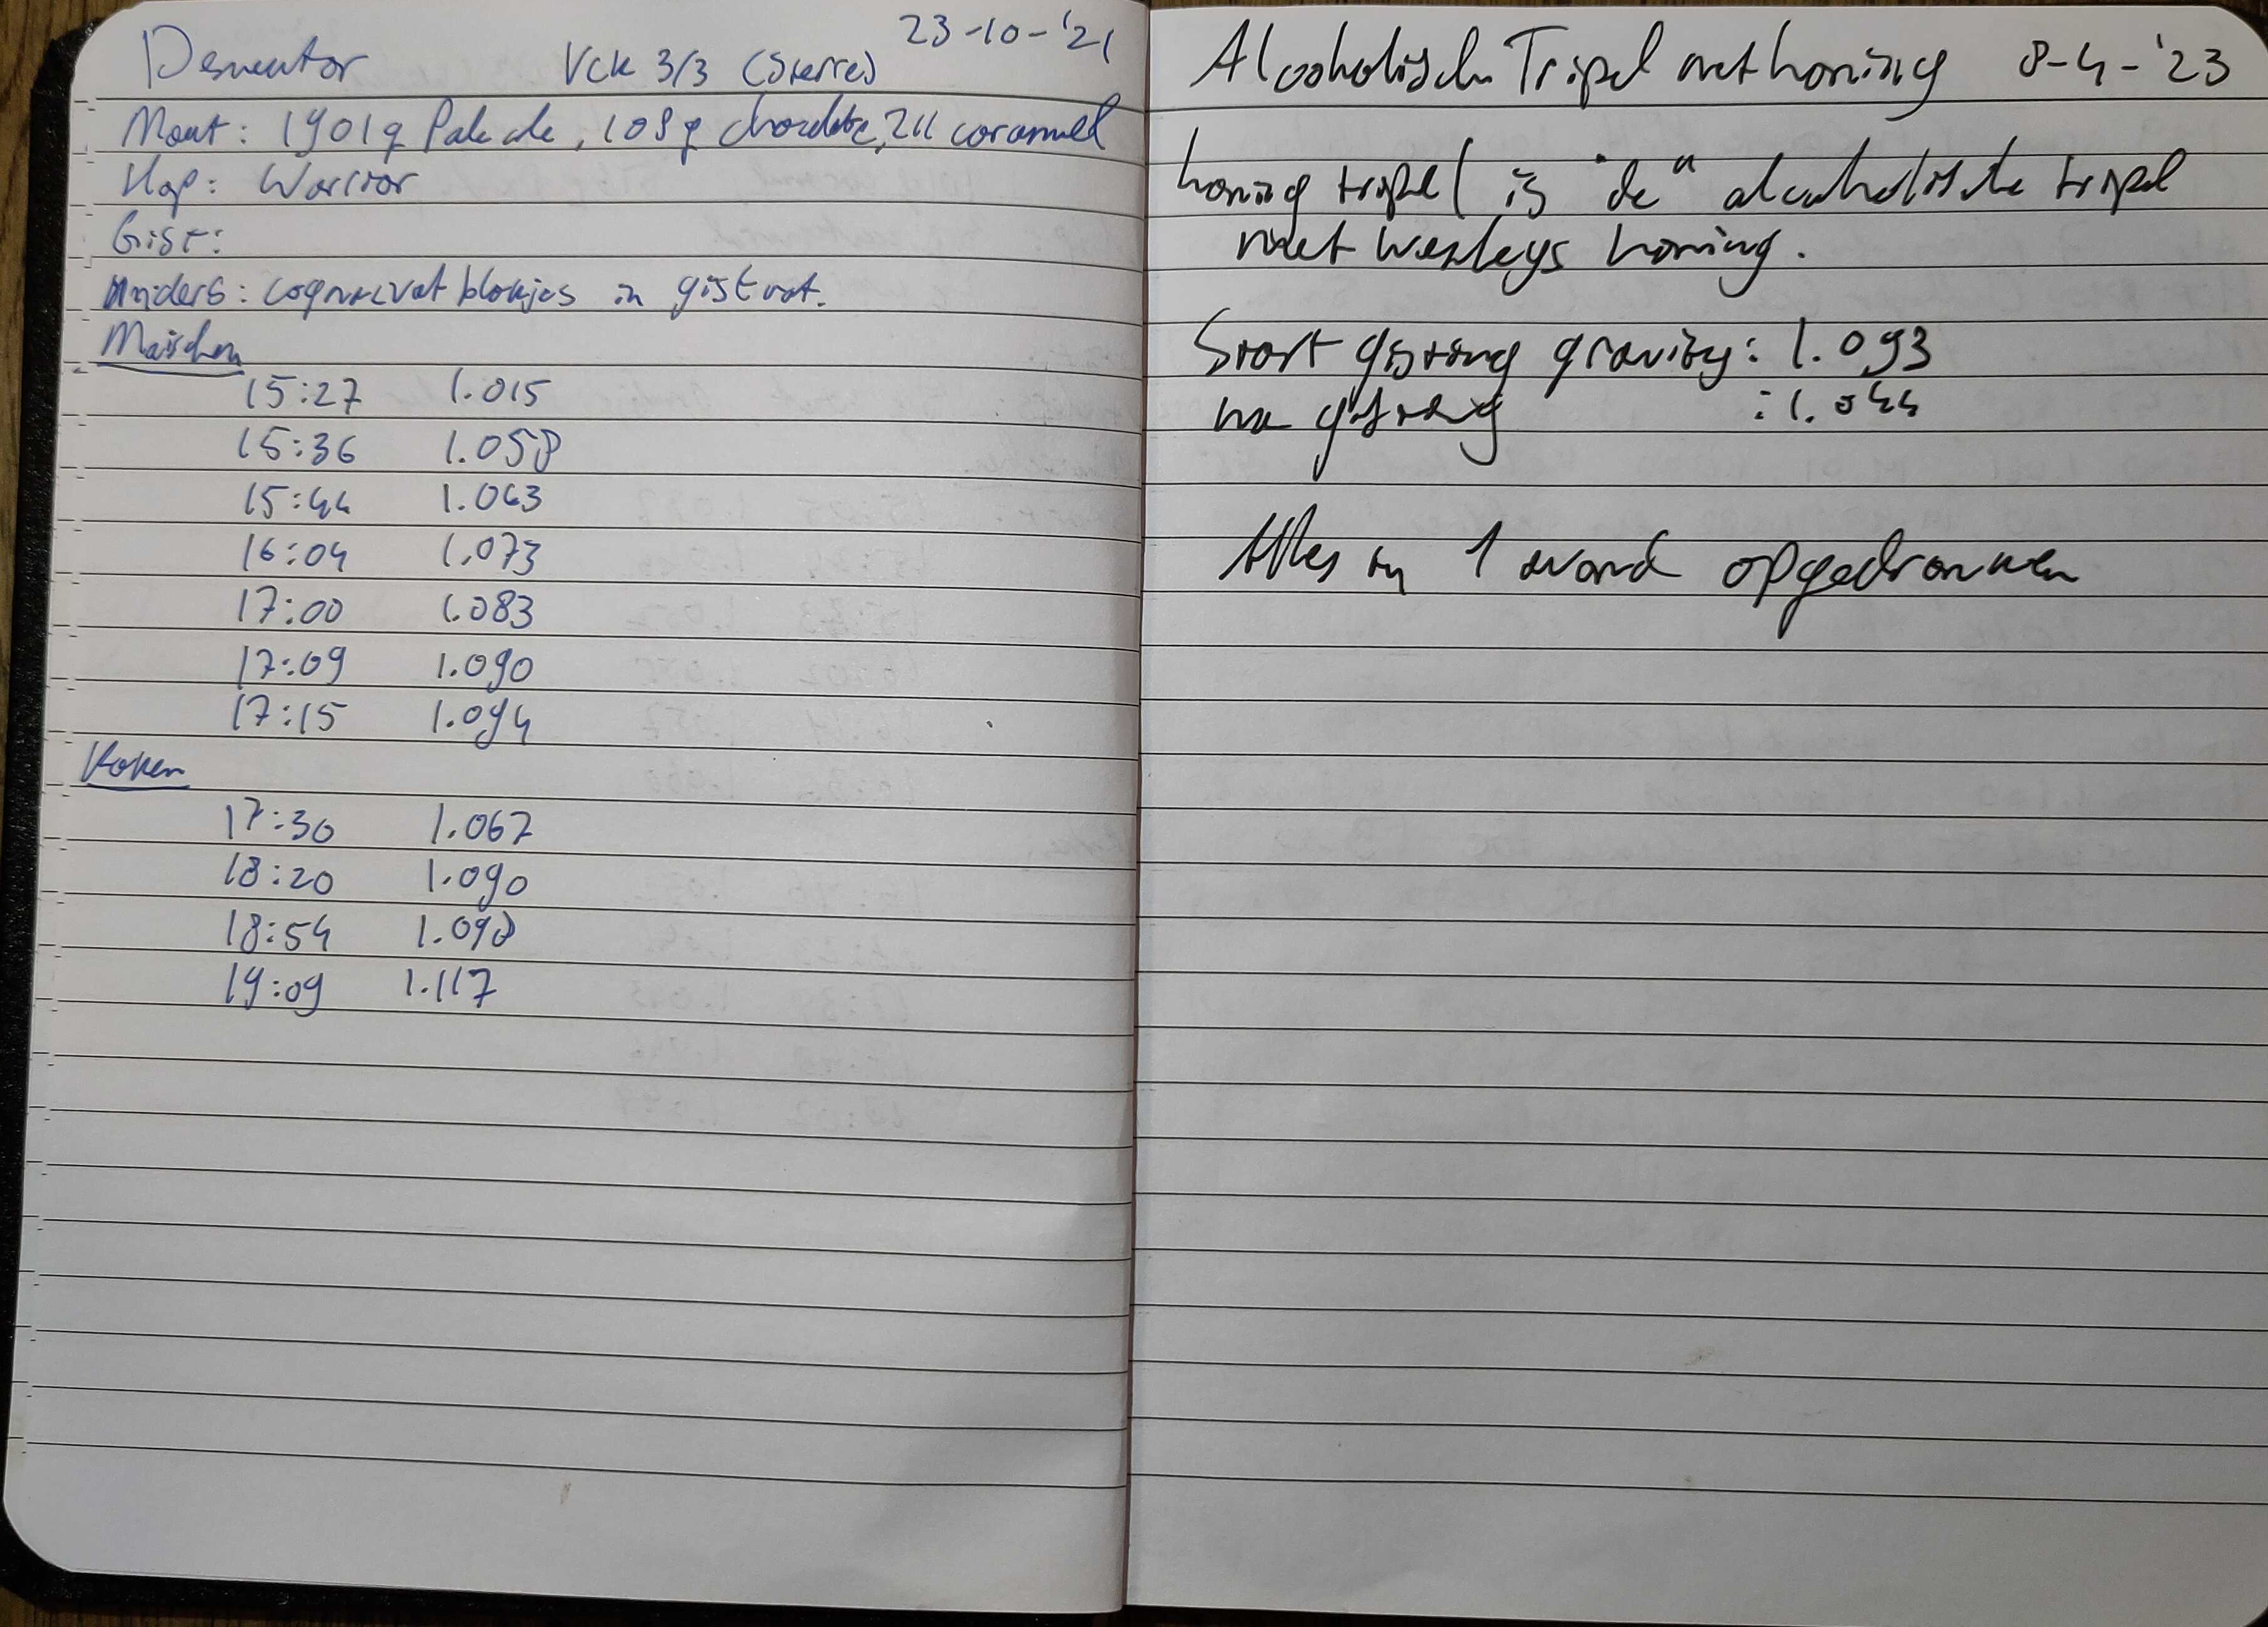 Dementor Vck 3/3 (Sterre) 23-10-'21
Mout: 1901g Pale ale, 108g chocolate, 211 caramel
Hop: Warrior
Gist:
Anders: cognacvat blokjes in gistvat.
Maischen
15:27 1.015
15:36 1.058
15:44 1.063
16:04 1.073
17:00 1.083
17:09 1.090
17:15 1.094
Koken
17:30 1.067
18:20 1.090
18:54 1.098
19:09 1.117
Alcoholische Tripel met honing 8-4-'23
honing tripel is "de" alcoholische tripel
met Wesleys honing.
Start gisting gravity: 1.093
na gisting : 1.044
Alles in 1 avond opgedronken